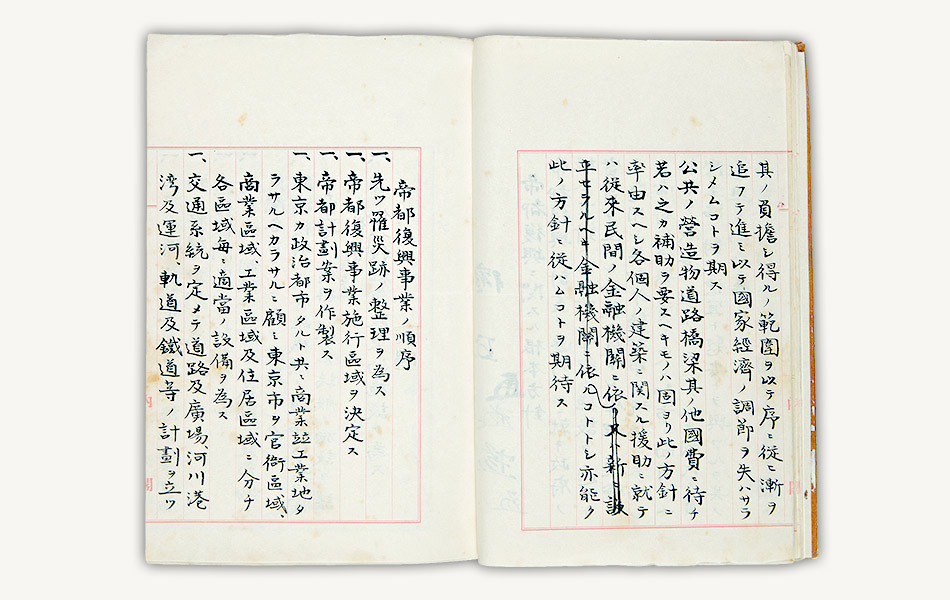 其ノ負擔シ得ルノ範圍ヲ以テ序ニ從ヒ漸ヲ
追フテ進ミ以テ國家經濟ノ調節ヲ失ハサラ
シメムコトヲ期ス
公共ノ營造物道路橋梁其ノ他國費ニ待チ
若ハ之カ補助ヲ要スヘキモノハ固ヨリ此ノ方針ニ
率由スヘシ各個人ノ建築ニ関スル援助ニ就テ
ハ從來民間ノ金融機關ニ依ル又ハ新ニ設
立セラルヘキ金融機關ニ依ルコトトシ亦能ク
此ノ方針ニ從ハムコトヲ期待ス
帝都復興事業ノ順序
一、先ツ罹災跡ノ整理ヲ為ス
一、帝都復興事業施行區域ヲ決定ス
一、帝都計劃案ヲ作製ス
一、東京カ政治都市タルト共ニ商業竝工業地タ
ラサルヘカラサルニ顧ミ東京市ヲ官衙區域、
商業區域、工業區域及住居區域ニ分チ
各區域毎ニ適當ノ設備ヲ為ス
一、交通系統ヲ定メテ道路及廣場、河川港
湾及運河、軌道及鐵道等ノ計劃ヲ立ツ